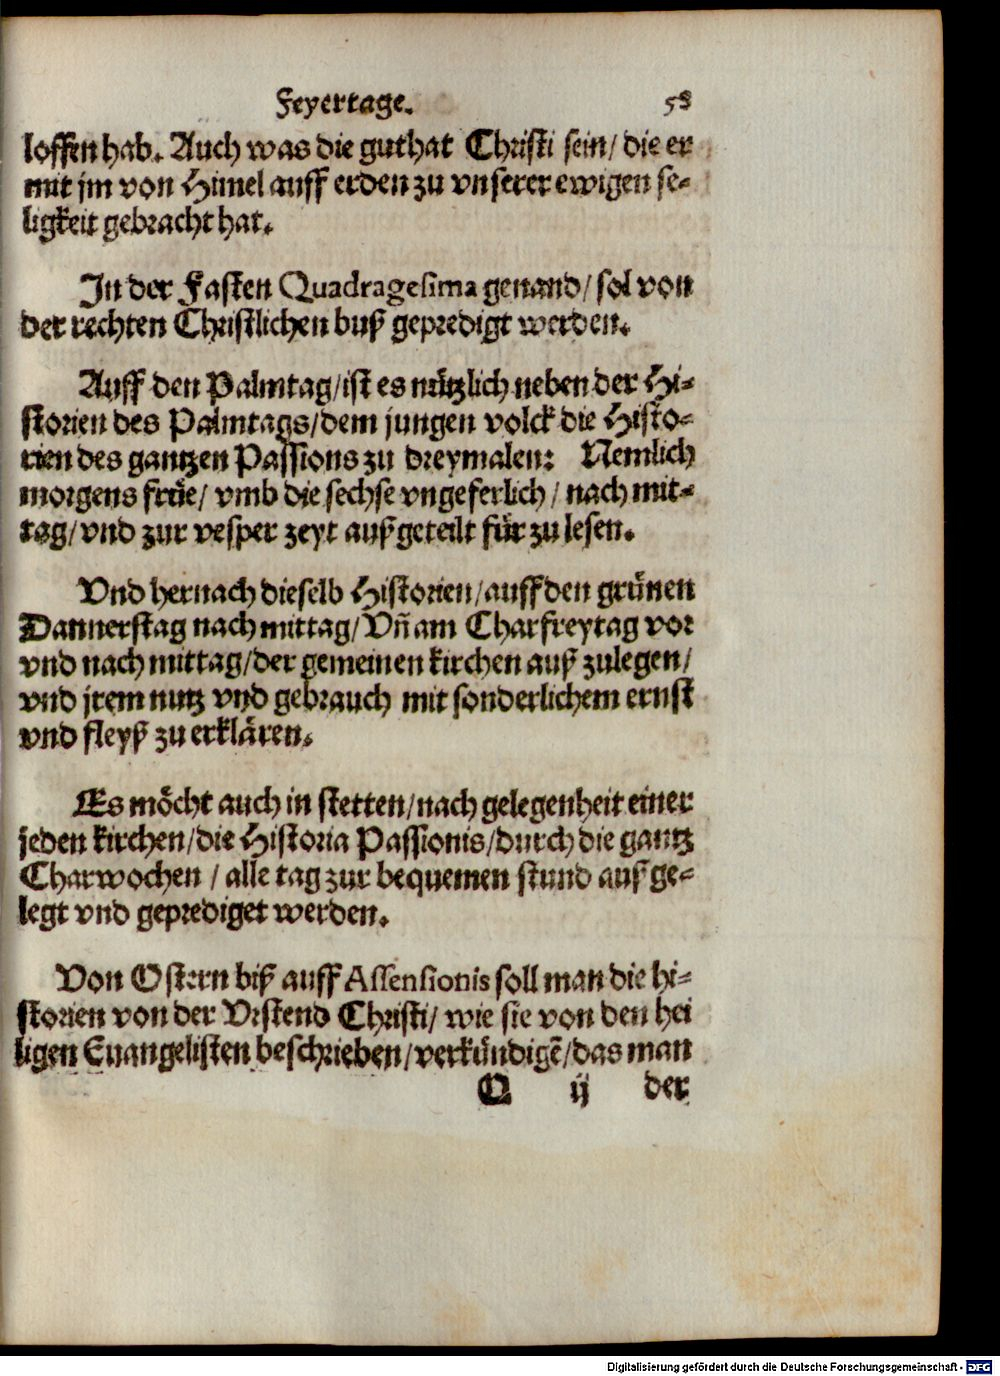 Feyertage. 58
loffen hab. Auch was die guthat Christi sein/ die er
mit jm von Himel auff erden zu vnserer ewigen se-
ligkeit gebracht hat.
In der Fasten Quadragesima genand/ sol von
der rechten Christlichen buß gepredigt werden.
Auff den Palmtag/ ist es nützlich neben der Hi-
storien des Palmtags/ dem jungen volck die Histo-
rien des gantzen Passions zu dreymalen: Nemlich
morgens früe/ vmb die sechse vngeferlich/ nach mit-
tag/ vnd zur vesper zeyt außgeteilt für zu lesen.
Vnd hernach dieselb Historien/ auff den grünen
Dannerstag nach mittag/ Vñ am Charfreytag vor
vnd nach mittag/ der gemeinen kirchen auß zulegen/
vnd jrem nutz vnd gebrauch mit sonderlichem ernst
vnd fleyß zu erklären.
Es möcht auch in stetten/ nach gelegenheit einer
jeden kirchen/ die Historia Passionis/ durch die gantz
Charwochen/ alle tag zur bequemen stund auß ge-
legt vnd geprediget werden.
Von Ostern biß auff Assensionis soll man die hi-
storien von der Vrstend Christi/ wie sie von den hei
ligen Euangelisten beschrieben/ verkündigẽ/ das man
O ij der
Digitalisierung gefördert durch die Deutsche Forschungsgemeinschaft - DFG